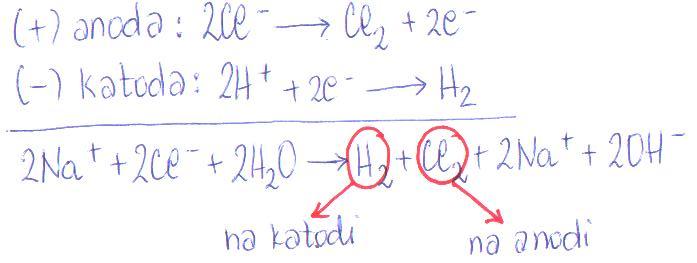 (+) anoda: 2Cl⁻ ⟶ Cl₂ + 2e⁻
(−) katoda: 2H⁺ + 2e⁻ ⟶ H₂
2Na⁺ + 2Cl⁻ + 2H₂O ⟶ H₂ + Cl₂ + 2Na⁺ + 2OH⁻
na katodi na anodi